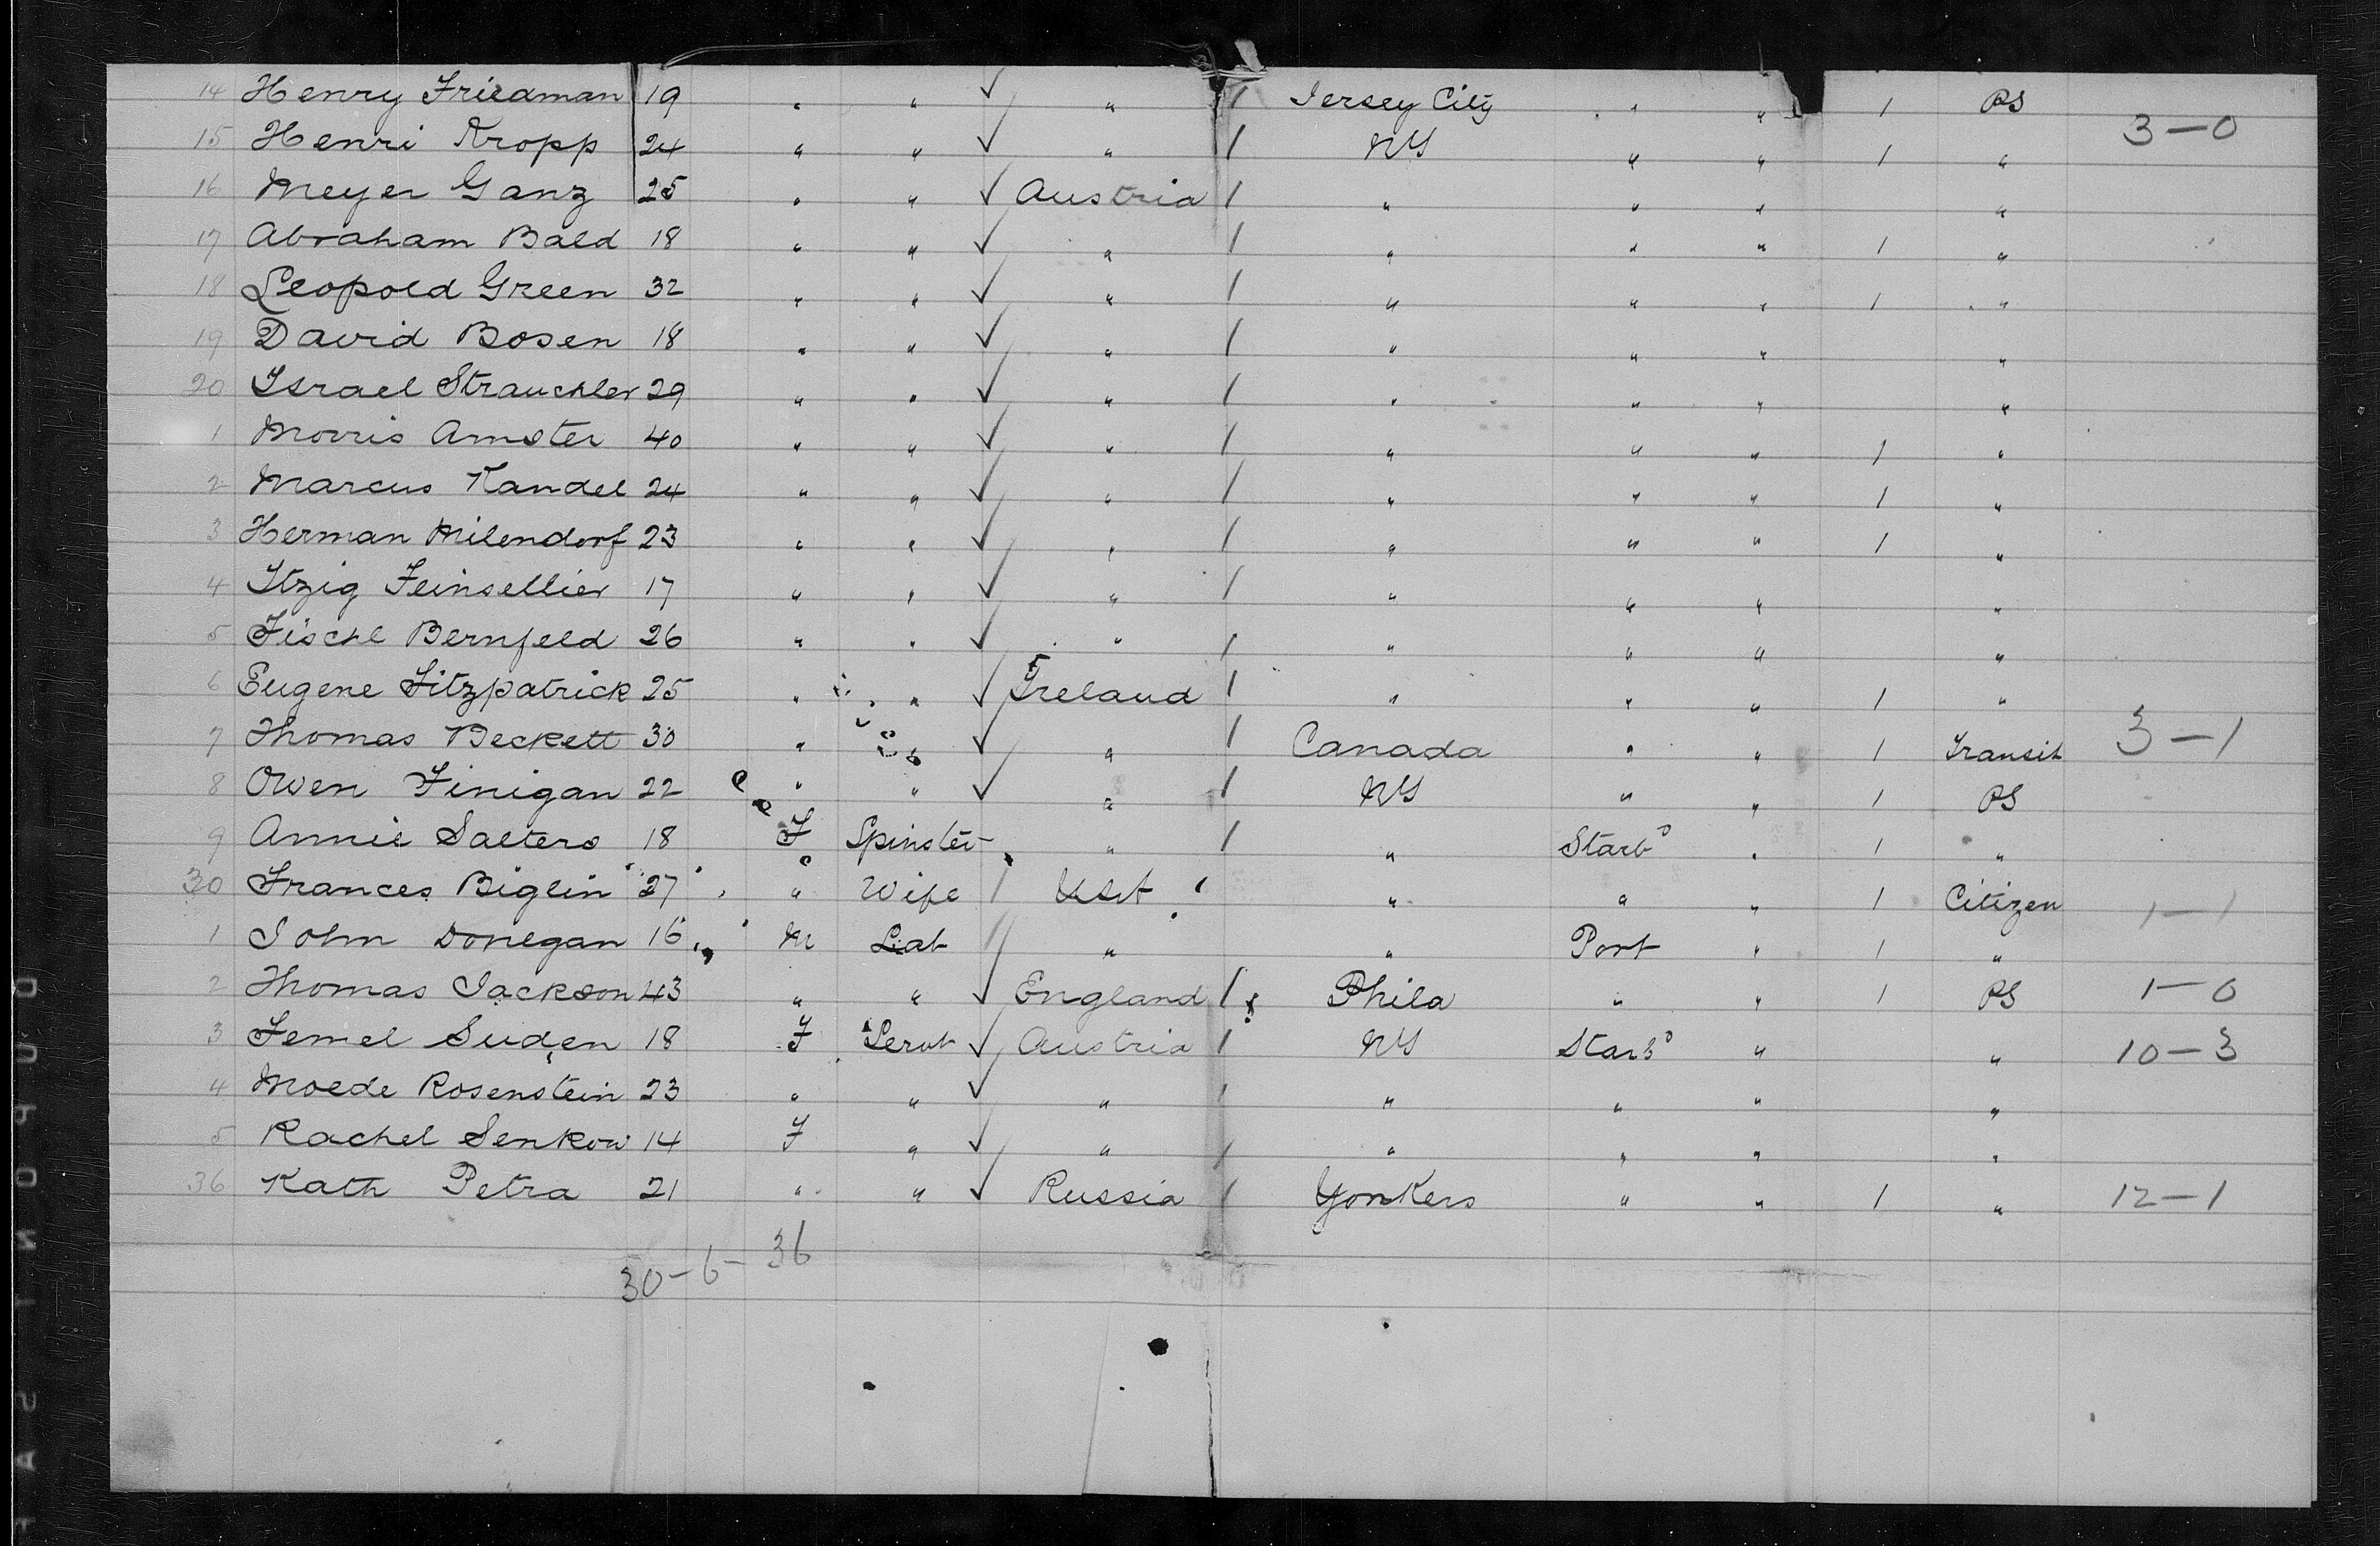 14 Henry Friedman 19 " " ✓ " / Jersey City " " 1 PS
3—0
15 Henri Kropp 24 " " ✓ " / NY " " 1 "
16 Meyer Ganz 25 " " ✓ Austria / " " " "
17 Abraham Bald 18 " " ✓ " / " " " 1 "
18 Leopold Green 32 " " ✓ " / " " " 1 "
19 David Bosen 18 " " ✓ " / " " " "
20 Israel Strauchler 29 " " ✓ " / " " " "
1 Morris Amster 40 " " ✓ " / " " " 1 "
2 Marcus Kandel 24 " " ✓ " / " " " 1 "
3 Herman Milendorf 23 " " ✓ " / " " " 1 "
4 Itzig Feinsellier 17 " " ✓ " / " " " "
5 Fischl Bernfeld 26 " " ✓ " / " " " "
6 Eugene Fitzpatrick 25 " " ✓ Ireland / " " " 1 "
7 Thomas Beckett 30 " " ✓ " / Canada " " 1 Transit 3—1
8 Owen Finigan 22 " " ✓ " / NY " " 1 PS
9 Annie Salters 18 F Spinster " / " Starbd " 1 "
30 Frances Biglin 27 " Wife / USA " " " 1 Citizen 1—1
1 John Donegan 16 M Lab // " " Port " 1 "
2 Thomas Jackson 43 " " ✓ England / Phila " " 1 PS 1—0
3 Femel Suden 18 F Servt ✓ Austria / NY Starbd " " 10—3
4 Moede Rosenstein 23 " " ✓ " / " " " "
5 Rachel Senkow 14 F " ✓ " / " " " "
36 Kath Petra 21 " " ✓ Russia / Yonkers " " 1 " 12—1
30-6-36